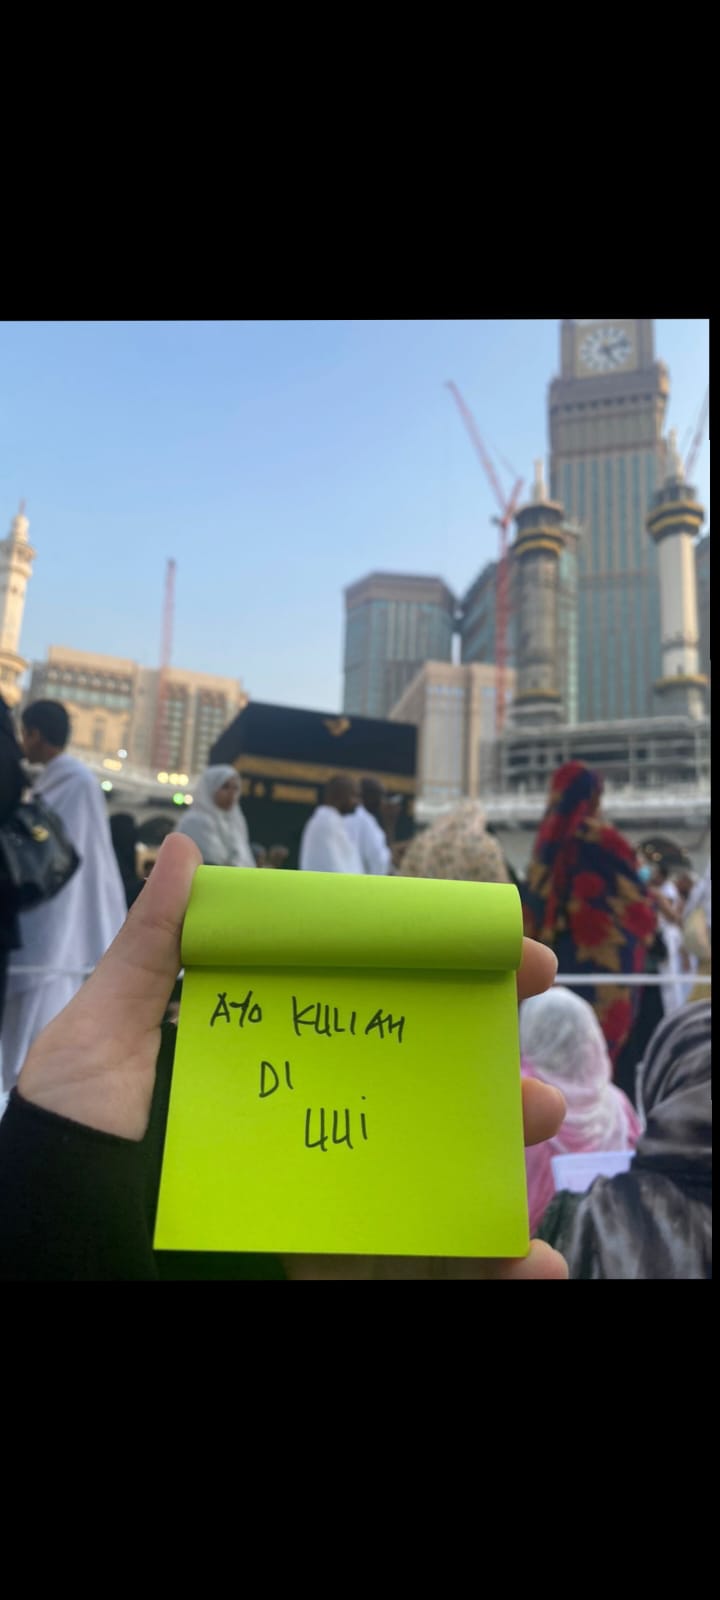 AYO KULIAH
DI
UUi